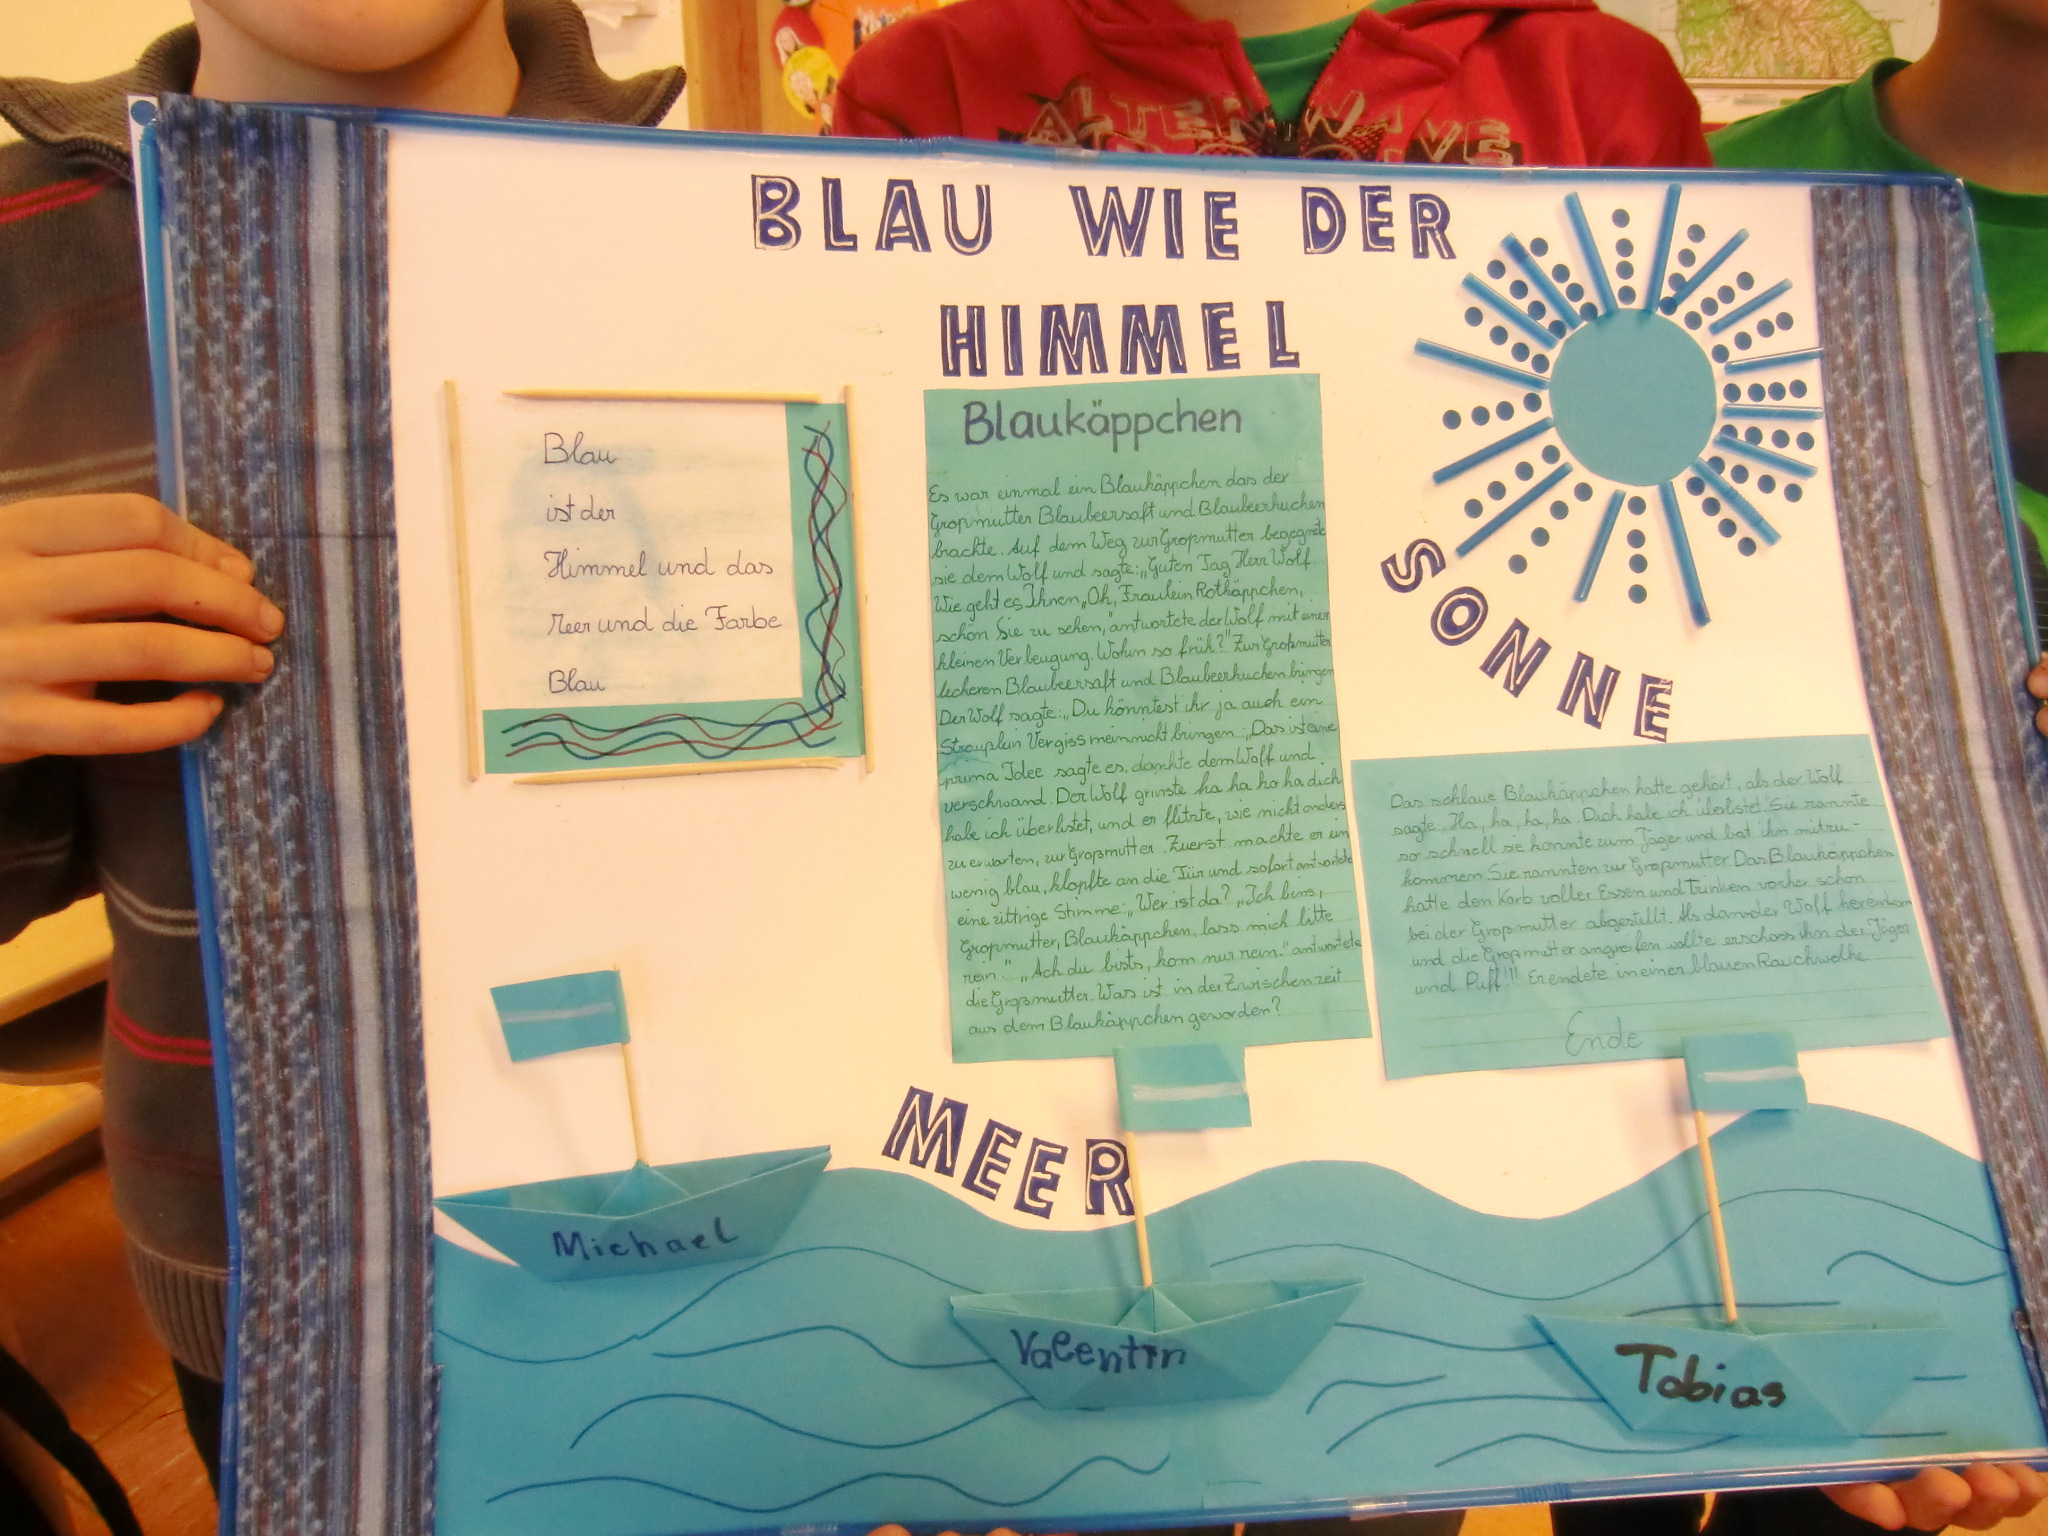 BLAU WIE DER
HIMMEL
SONNE
MEER
Blau
ist der
Himmel und das
Meer und die Farbe
Blau
Blaukäppchen
Es war einmal ein Blaukäppchen das der
Großmutter Blaubeersaft und Blaubeerkuchen
brachte. Auf dem Weg zur Großmutter begegnete
sie dem Wolf und sagte: „Guten Tag Herr Wolf.
Wie geht es Ihnen „Oh, Fräulein Rotkäppchen,
schön Sie zu sehen," antwortete der Wolf mit einer
kleinen Verbeugung. Wohin so früh?" Zur Großmutter
leckeren Blaubeersaft und Blaubeerkuchen bringen
Der Wolf sagte: „Du könntest ihr ja auch ein
Sträußlein Vergissmeinnicht bringen. „Das ist eine
prima Idee sagte es, dankte dem Wolf und
verschwand. Der Wolf grinste ha ha ho ha dich
habe ich überlistet, und er flitzte, wie nicht anders
zu erwarten, zur Großmutter. Zuerst machte er ein
wenig blau, klopfte an die Tür und sofort antwortete
eine zittrige Stimme: „Wer ist da? „Ich bins,
Großmutter, Blaukäppchen, lass mich bitte
rein." „Ach du bists, kom nur rein." antwortete
die Großmutter. Was ist in der Zwischenzeit
aus dem Blaukäppchen geworden?
Das schlaue Blaukäppchen hatte gehört, als der Wolf
sagte: „Ha, ha, ha, ha. Dich habe ich überlistet. Sie rannte
so schnell sie konnte zum Jäger und bat ihn mitzu-
kommen. Sie rannten zur Großmutter. Das Blaukäppchen
hatte den Korb voller Essen und trinken vorher schon
bei der Großmutter abgestellt. Als dann der Wolf hereinkam
und die Großmutter angreifen wollte erschoss ihn der Jäger
und Puff!!! Er endete in einer blauen Rauchwolke
Ende
Michael
Valentin
Tobias